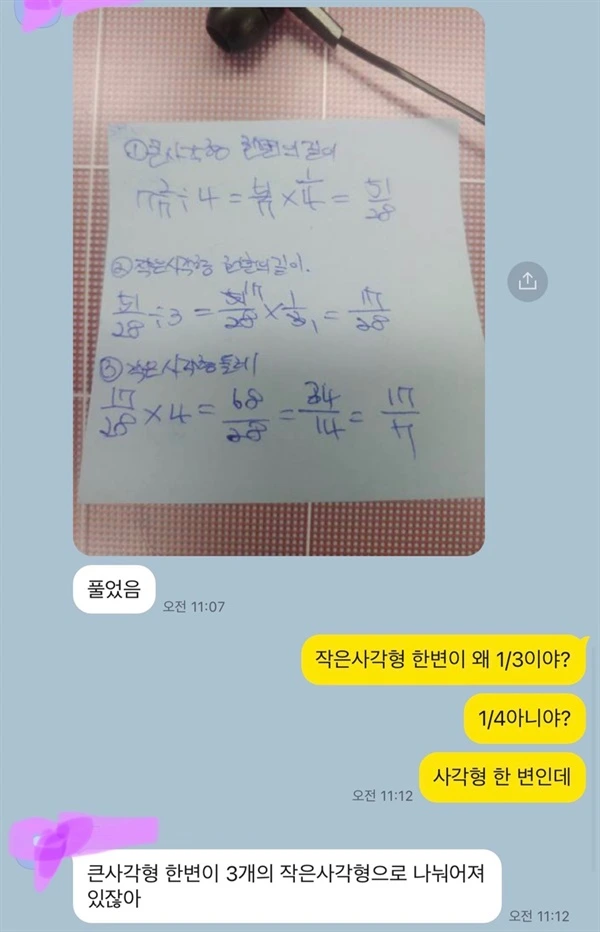 ①큰사각형 한변의길이
7 2/7 ÷ 4 = 51/7 × 1/4 = 51/28
②작은사각형 한변의길이.
51/28 ÷ 3 = 51 17/28 × 1/3 1 = 17/28
③ 작은사각형둘레
17/28 × 4 = 68/28 = 34/14 = 17/7
풀었음
오전 11:07
작은사각형 한변이 왜 1/3이야?
1/4아니야?
사각형 한 변인데
오전 11:12
큰사각형 한변이 3개의 작은사각형으로 나눠어져
있잖아
오전 11:12